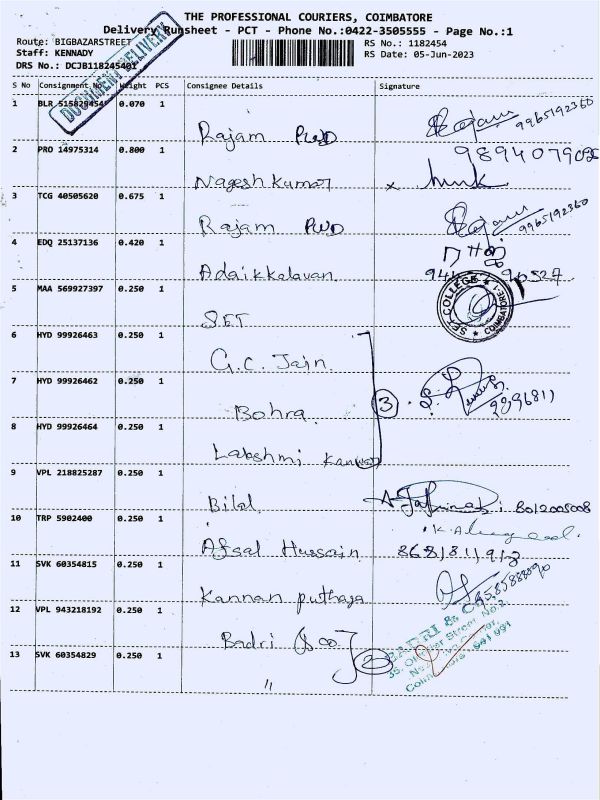 THE PROFESSIONAL COURIERS, COIMBATORE
Delivery Runsheet - PCT - Phone No.:0422-3505555 - Page No.:1
Route: BIGBAZARSTREET
RS No.: 1182454
Staff: KENNADY
RS Date: 05-Jun-2023
DRS No.: DCJB118245401
DOCUMENT DELIVERY
S No Consignment No Weight PCS Consignee Details Signature
1 BLR 0.070 1
Rajam PWD Rajam 9965192360
2 PRO 14975314 0.800 1
Nagesh Kumar x
3 TCG 40505620 0.675 1
Rajam PWD Rajam 9965192360
4 EDQ 25137136 0.420 1
Adaikkalavan
5 MAA 569927397 0.250 1
SET COLLEGE COIMBATORE-1
6 HYD 99926463 0.250 1
G.C. Jain
7 HYD 99926462 0.250 1
Bohra 3
8 HYD 99926464 0.250 1
Lakshmi Kanwar
9 VPL 218825287 0.250 1
Bilal 8012005008
10 TRP 5902400 0.250 1
Afsal Hussain
11 SVK 60354815 0.250 1
Kannan puthaga
12 VPL 943218192 0.250 1
Badri & co
BADRI & CO
13 SVK 60354829 0.250 1
"